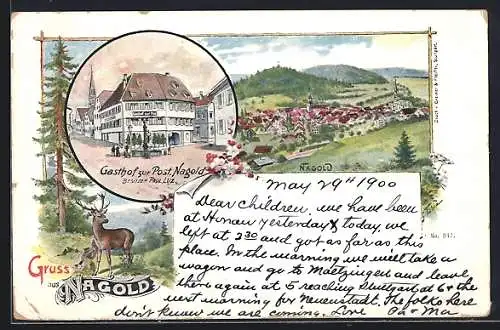 Gasthof zur Post, Nagold
Besitzer Paul Luz.
NAGOLD
Gruss
aus
NAGOLD
No. 817.
May 29th 1900
Dear Children, we have been
at Hirsau yesterday & today, we
left at 2 30 and got as far as this
place. In the morning we will take a
wagon and go to Moetzingen and leave
there again at 5 reaching Stuttgart at 6 & the
next morning for Neuenstadt. The folks here
don't know we are coming. Love Pa & Ma